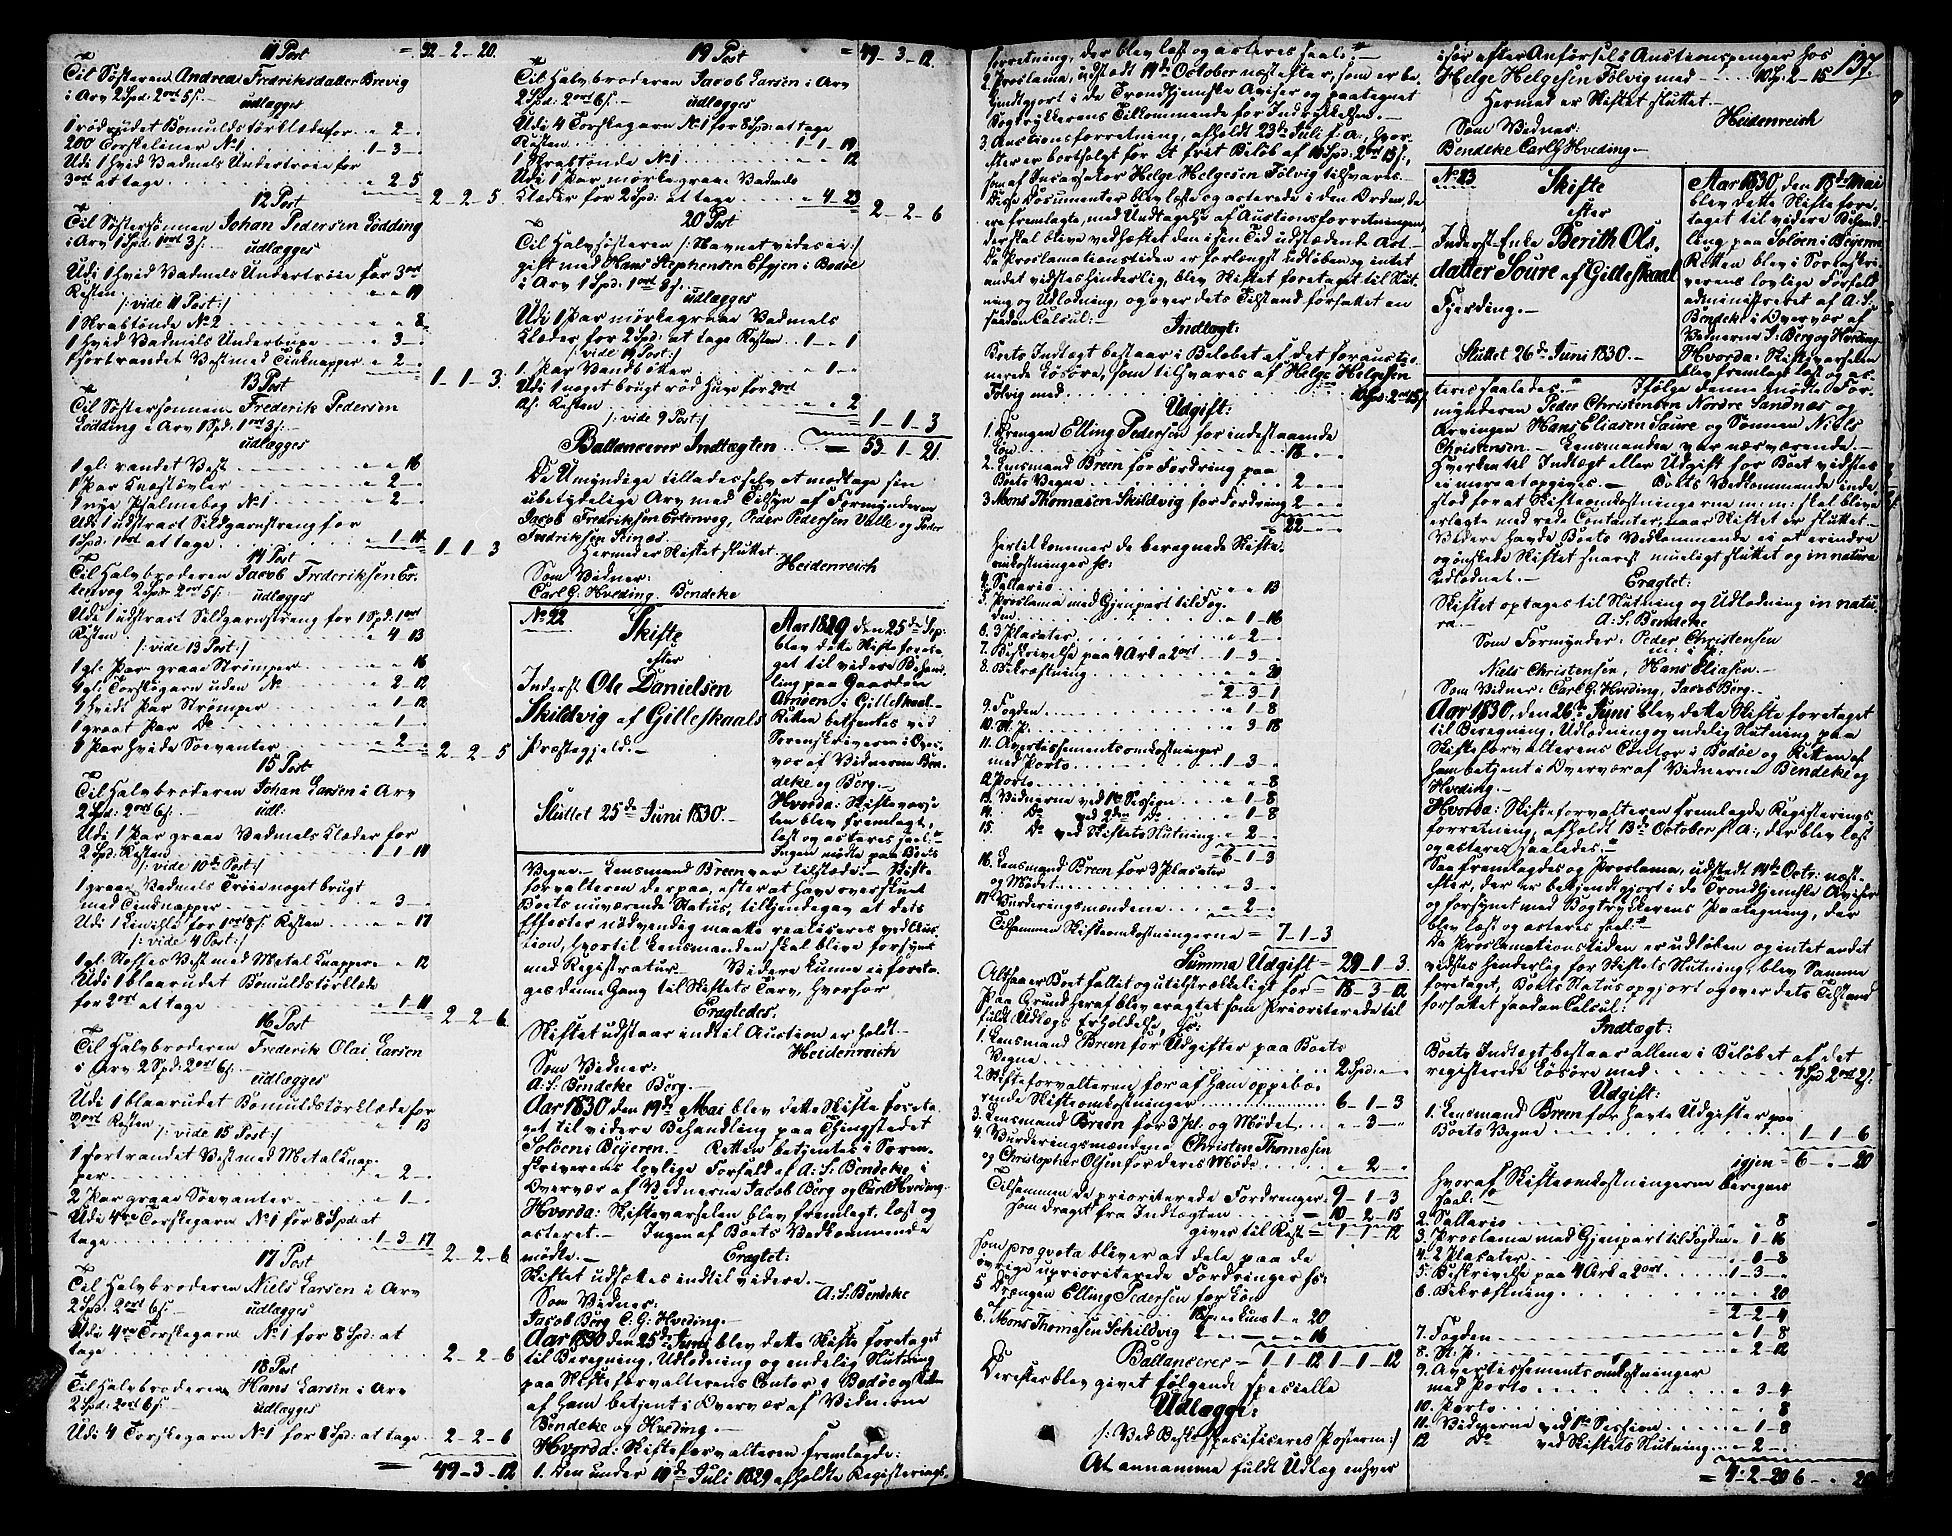 11 Post = 32-2-20.
Til Søsteren Andrea Fredriksdatter Brevig
i Arv 2 Spd: 2 ort 5 s. -
udlægges
1 rødrudet Bomuldstørklæde for - 2 -
200 Torskeliner No 1 1-3-
Udi 1 hvid Vadmels Undertrøie for
3 ort at tage - 2-5
2-2-5
12 Post
Til Søstersønnen Johan Pedersen Lødding
i Arv 1 Spd: 1 ort 3 s: - udlægges
Udi 1 hvid Vadmels Undertrøie for 3 ort
Resten - 19
/: vide 11 Post :/
1 Krabtønde No 2 - 8
1 hvid Vadmels Underbuxe - 3 -
1 sortrandet Vest med Tinknapper - 2 -
1-1-3.
13 Post
Til Søstersønnen Frederik Pedersen
Lødding i Arv 1 Spd. 1 ort 3 s. -
udlægges
1 gl: randet Vest - 16
1 Par Knæstøvler - 2 -
1 nye Psalmebog No 1 - 2 -
Udi 1 udstract Sildgarnstreng for
1 Spd: 1 ort at tage - 1-11
1-1-3
14 Post
Til Halvbroderen Jacob Frederiksen Er-
tenvog 2 Spd: 2 ort 5 s: udlægges
Udi 1 udstract Sildgarnstreng for 1 Spd: 1 ort
Resten - 4-13
/: vide 13 Post :/
1 gl: Par graae Strømper - 16
4 gl: Torskegarn uden No - 2-12
1 hvidt Par Strømper - 1-12
1 graat Par Do - 1 -
4 Par hvide Søevanter - 2 -
2-2-5
15 Post
Til Halvbroderen Johan Larsen i Arv
2 Spd: 2 ort 6 s: - udl:
Udi 1 Par graae Vadmels Klæder for
2 Spd: Resten 1-1-14
/: vide 10de Post :/
1 graae Vadmels Trøie noget brugt
med Tindknapper - 3 -
Udi 1 for 1 ort 8 s. Resten - 17
/: vide 4 Post :/
1 gl. Stoffes Vest med Metal Knapper - 12
Udi 1 blaarudet Bomuldstørklæde
for 2 ort at tage - 1-11
2-2-6
16 Post
Til Halvbroderen Frederik Olai Larsen
i Arv 2 Spd: 2 ort 6 s. -
udlægges
Udi 1 blaarudet Bomuldstørklæde for
2 ort Resten - 13
/: vide 15 Post :/
1 sortrandet Vest med Metal Knap-
per - 2 -
2 Par graae Søevanter - 1 -
Udi 4re Torskegarn No 1 for 8 Spd: at
tage 1-3-17
2-2-6
17 Post
Til Halvbroderen Niels Larsen i Arv
2 Spd: 2 ort 6 s: - udlægges
Udi 4re Torskegarn No 1 for 8 Spd: at
tage 2-2-6
18 Post
Til Halvbroderen Hans Larsen i Arv
2 Spd: 2 ort 6 s. - udlægges
Udi 4 Torskegarn No 1 for 8 Spd: at tage 2-2-6
= 49-3-12
19 Post = 49-3-12.
Til Halvbroderen Jacob Larsen i Arv
2 Spd: 2 ort 6 s: - udlægges
Udi 4 Torskegarn No 1 for 8 Spd: at tage
Resten 1-1-19
1 Krabtønde No 1 - 12
Udi 1 Par mørkegraae Vadmels
Klæder for 2 Spd: at tage - 4-23
2-2-6
20 Post
Til Halvsøsteren /: Navnet vides ei :/
gift med Hans Stephensen i Bodøe
i Arv 1 Spd: 1 ort 3 s: -
udlægges
Udi 1 Par mørkegraae Vadmels
Klæder for 2 Spd: at tage Resten - 1-1
/: vide 19 Post :/
1 Par Vandbøtter - 1 -
Udi 1 noget brugt rød Huve for 2 ort
8 s: Resten - 2
/: vide 9 Post :/
1-1-3
Ballancerer Indtægten = 53-1-21
De Umyndige tillades selv at modtage sin
ubetydelige Arv med Tilsyn af Formynderen
Jacob Fredriksen Ertenvog, Peder Pedersen Valle og Peder
Fredriksen
Hermed er Skiftet sluttet
Heidenreich
Som Vidner:
Carl G. Hveding. Bendeke
No 22
Skifte
efter
Inderst Ole Danielsen
Skildvig af Gilleskaals
Præstegjeld. -
Sluttet 25de Juni 1830. -
Aar 1829 den 25de Sep-
blev dette Skifte foreta-
get til videre Behand-
ling paa Gaarden
Arnøen i Gilleskaal. -
Retten betjentes ved
Sorenskriveren i Over-
vær af Vidnerne Ben-
deke og Berg. -
Hvorda: Skiftevarse-
len blev fremlagt,
læst og acteres saal:
Ingen mødte paa Boets
Vegne. - Lensmand Breen var tilstæde. - Skifte-
forvalteren derpaa, efter at have overskuet
Boets nuværende Status, tilkjendegav at dets
Effecter nødvendig maatte realiseres ved Auc-
tion, hvortil Lensmanden skal blive forsynt
med Registratur. - Videre kunne ei foreta-
ges denne Gang til Skiftets Tarv, hvorfor
Eragtedes.
Skiftet udstaar indtil Auction er holdt. -
Heidenreich
Som Vidner:
A: S: Bendeke Berg. -
Aar 1830 den 19de Mai blev dette Skifte foreta-
get til videre Behandling paa Thingstedet
Soløen i Beyeren. - Retten betjentes i Soren-
skriverens lovlige Forfald af A: S: Bendeke, i
Overvær af Vidnerne Jacob Berg og Carl Hveding.
Hvorda: Skiftevarselen blev fremlagt, læst og
acteret. - Ingen af Boets Vedkommende
mødte. - Eragtet:
Skiftet udsættes indtil videre. -
A: S: Bendeke
Som Vidner:
Jacob Berg C. G: Hveding. -
Aar 1830 den 25de Juni blev dette Skifte foretaget
til Beregning, Udlodning og endelig Slutning
paa Skifteforvalterens Contor i Bodøe og Retten
af ham betjent i Overvær af Vidnerne
Bendeke og Hveding. -
Hvorda: Skifteforvalteren fremlagde:
1. Den under 10de Juli 1829 afholdte Registerings-
137.
forretning, der blev læst og acteres saal:
2. Proclama, udstædt 14de October næst efter, som er be-
kyndtgjort i de Trondhjemske Aviser og paategnet
Bogtrykkerens Tilkommende for Indrykkelsen. -
3 Auctionsforretning, afholdt 23de Juli f. A:, hvor-
efter er bortsolgt for et frit Beløb af 10 Spd: 2 ort 15 s:,
som af Incassator Helge Helgesen Tølvig tilsvares.
Disse Documenter blev læste og acterede i den Orden, de
ere fremlagte, med Undtagelse af Auctionsforretningen,
der skal blive vedhæftet den i sin Tid udstædende Act. -
Da Proclamationstiden er forlængst udløben og intet
andet vidstes hinderlig, blev Skiftet foretaget til Slut-
ning og Udlodning, og over dets Tilstand forfattet en
saadan Calcul: -
Indtægt:
Boets Indtægt bestaar i Beløbet af det forauctio-
nerede Løsøre, som tilsvares af Helge Helgesen
Tølvig med 10 Spd: 2 ort 15 s.
Udgift:
1. Drengen Elling Pedersen for indestaaende
Løn 18 - -
2. Lensmand Breen for Fordring paa
Boets Vegne 2 - -
3 Mons Thomasen Skildvig for Fordring 2 - -
= 22 - -
hertil kommer de beregnede Skifte-
omkostninger s:
4. Sallario - 13
5. Proclama med Gjenpart til Fog-
den - 1-16
6. 3 Placater - 2 -
7. Beskrivelse paa 4 Ark a 2 ort 1-3-
8. Bekræftning - 20
- 2-3-1
9. Fogden - 1-8
10. St: P: - 3-18
11. Avertissementsomkostninger
med Porto 1-3-
12. Porto - 8
13. Vidnerne ved 1ste Session - 1-8
14. Do ved 2den Do - 1-8
15. Do ved Skiftets Slutning - 2 -
= 6-1-3
16. Lensmand Breen for 3 Placater
og Mødet - 3 -
17 Vurderingsmændene - 2 -
Tilsammen Skifteomkostningerne = 7-1-3
Summa Udgift = 29-1-3.
Altsaa er Boet fallit og utilstrækkeligt for = 18-3-12
Paa Grund heraf blev eragtet som Prioriterede til
fuldt Udlægs Erholdelse, s:
1. Lensmand Breen for Udgifter paa Boets
Vegne 2 Spd: - -
2. Skifteforvalteren for af ham oppebæ-
rende Skifteomkostninger 6-1-3
3. Lensmand Breen for 3 Pl. og Mødet - 3 -
4. Vurderingsmændene Christen Thomasen
og Christopher Olsen for deres Møde - 2 -
Tilsammen de prioriterede Fordringer 9-1-3
som draget fra Indtægten = 10-2-15
gives til Rest = 1-1-12
som pro qvota bliver at dele paa de
øvrige uprioriterede Fordringer s:
5 Drængen Elling Pedersen for Løn
af 18 Spd: er kuns 1 - 20
6. Mons Thomesen Schildvig 2 - - 16
Ballancerer = 1-1-12 1-1-12
Derefter blev givet følgende specielle
Udlægge:
/: Ved Beskr specificeres Posterne :/
At annamme fuldt Udlæg enhver
især efter Anførsel i Auctionspenger hos
Helge Helgesen Tølvig med 10 Sp: 2-15
Hermed er Skiftet sluttet. -
Heidenreich
Som Vidner:
Bendeke Carl G Hveding. -
No 23
Skifte
efter
Inderst-Enke Berith Ols-
datter Soure af Gilleskaal
Fjerding. -
Sluttet 26de Juni 1830. -
Aar 1830, den 18de Mai
blev dette Skifte fore-
taget til videre Behand-
ling paa Soløen i Beyeren
Retten blev i Sorenskri-
verens lovlige Forfald
administreret af A: S:
Bendeke i Overvær af
Vidnerne J: Berg og Hveding
Hvorda: Skiftevarselen
blev fremlagt læst og ac-
teres saaledes. - Ifølge denne mødte For-
mynderen Peder Christensen Nordre Sandnæs og
Arvingen Hans Eliasen Saure og Sønnen Niels
Christensen. - Lensmanden var nærværende. -
Hverken til Indtægt eller Udgift for Boet vidstes
ei mere at opgives. - Boets Vedkommende inde-
stod for at Skifteomkostningerne m: m: skal blive
erlagte med rede Contanter, naar Skiftet er sluttet. -
Videre havde Boets Vedkommende ei at erindre
og ønskede Skiftet snarest mueligt sluttet og in natura
udlodnet. - Eragtet:
Skiftet optages til Slutning og Udlodning in natu-
ra. - A. S. Bendeke
Som Formynder: Peder Christensen
m: i: P:
Niels Christensen, Hans Eliasen. -
Som Vidner: Carl G. Hveding, Jacob Berg. -
Aar 1830, den 26de Juni blev dette Skifte foretaget
til Beregning, Udlodning og endelig Slutning paa
Skifteforvalterens Contor i Bodøe og Retten af
ham betjent i Overvær af Vidnerne Bendeke og
Hveding. -
Hvorda: Skifteforvalteren fremlagde Registerings-
forretning, afholdt 13de October f: A:, der blev læst
og acteres saaledes. -
Saa fremlagdes og Proclama, udstædt 14de Octr: næst-
efter, der er bekjendtgjort i de Trondhjemske Aviser
og forsynet med Bogtrykkerens Paategning, der
blev læst og acteres saal: -
Da Proclamationstiden er udløben og intet andet
vidstes henderlig for Skiftets Slutning, blev Samme
foretaget, Boets Status opgjort og over dets Tilstand
forfattet saadan Calcul: -
Indtægt:
Boets Indtægt bestaar allene i Beløbet af det
registerede Løsøre med 7 Spd 2 ort 2 s:
Udgift:
1. Lensmand Breen for havte Udgifter paa
Boets Vegne 1-1-6
igjen = 6 - 20
hvoraf Skifteomkostningerne beregnes
saal:
2. Sallario - 8
3. Proclama med Gjenpart til Fogden - 1-16
4. 2 Placater - 1-8
5: Beskrivelse paa 4 Ark a 2 ort 1-3-
6. Bekræftning - 20
= 2-2-4
7. Fogden - 1-8
8. St. P. - 2-12
9. Avertissementsomkostninger
med Porto - 3-4
10. Porto - 8
11. Vidnerne ved 1ste Session - 1-8
12 Do ved Skiftets Slutning - 2 -
= 4-2-20 6 - 20